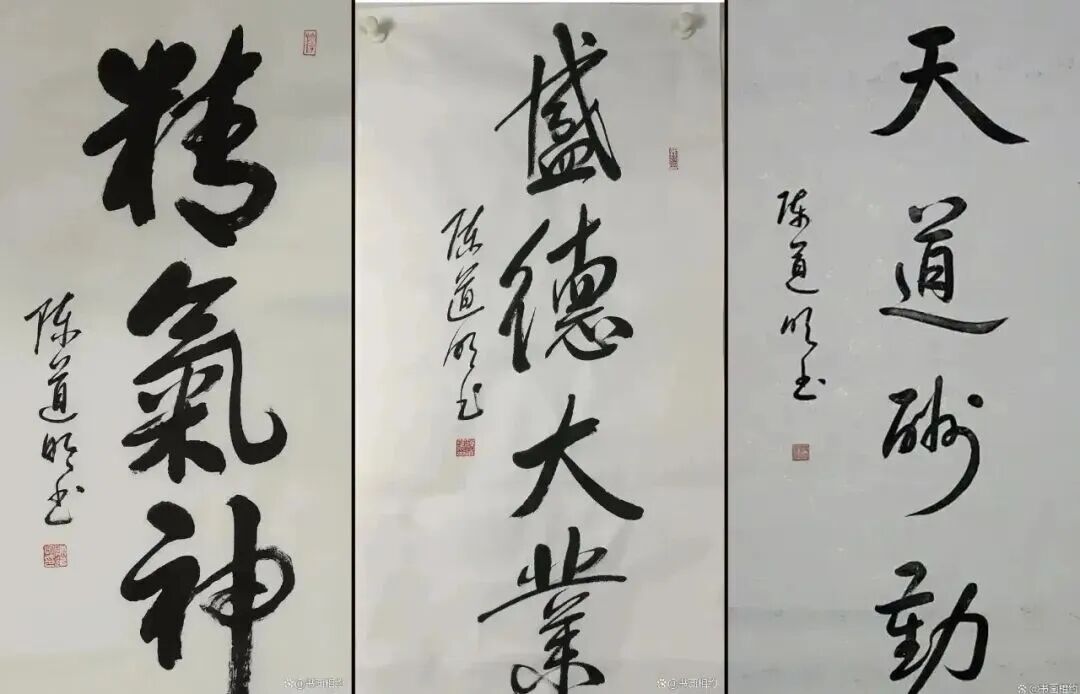 精氣神
陈道明书
盛德大業
陈道明书
天道酬勤
陈道明书
@书画相约
@书画相约
@书画相约